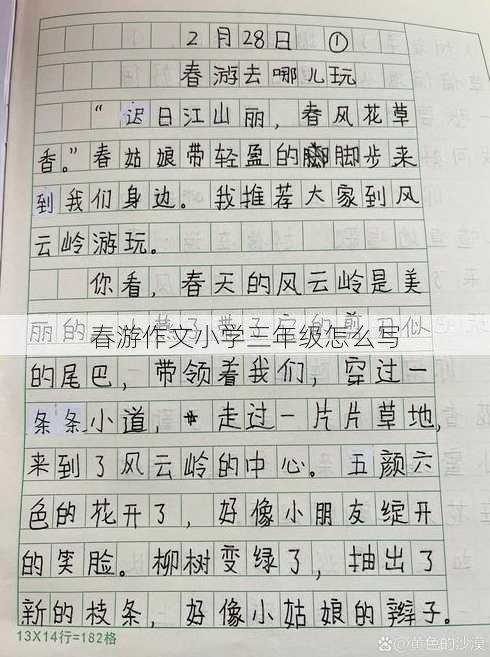 2月28日 ①
春游去哪儿玩
“迟日江山丽，春风花草
香。”春姑娘带轻盈的脚步来
到我们身边。我推荐大家到风
云岭游玩。
你看，春天的风云岭是美
丽的
春游作文小学三年级怎么写
的尾巴，带领着我们，穿过一
条条小道，走过一片片草地，
来到了风云岭的中心。五颜六
色的花开了，好像小朋友绽开
的笑脸。柳树变绿了，抽出了
新的枝条，好像小姑娘的辫子。
13X14行=182格
@黄色的沙漠